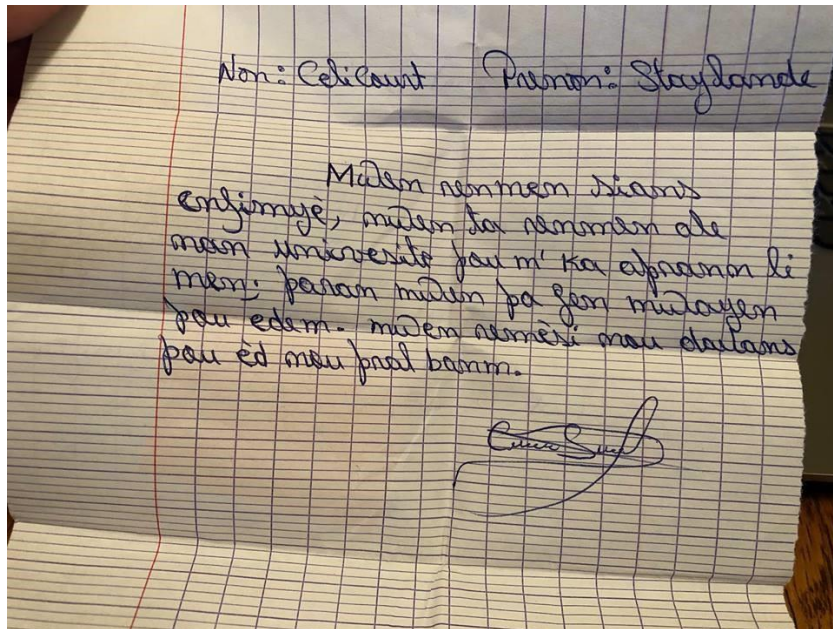 Non: Celicourt Prenon: Staylande
Mwen renmen sians
enfimyè, mwen ta renmen ale
nan univesite pou m' ka aprann li
men; paran mwen pa gen mwayen
pou edem. mwen remèsi nou davans
pou èd nou pral banm.